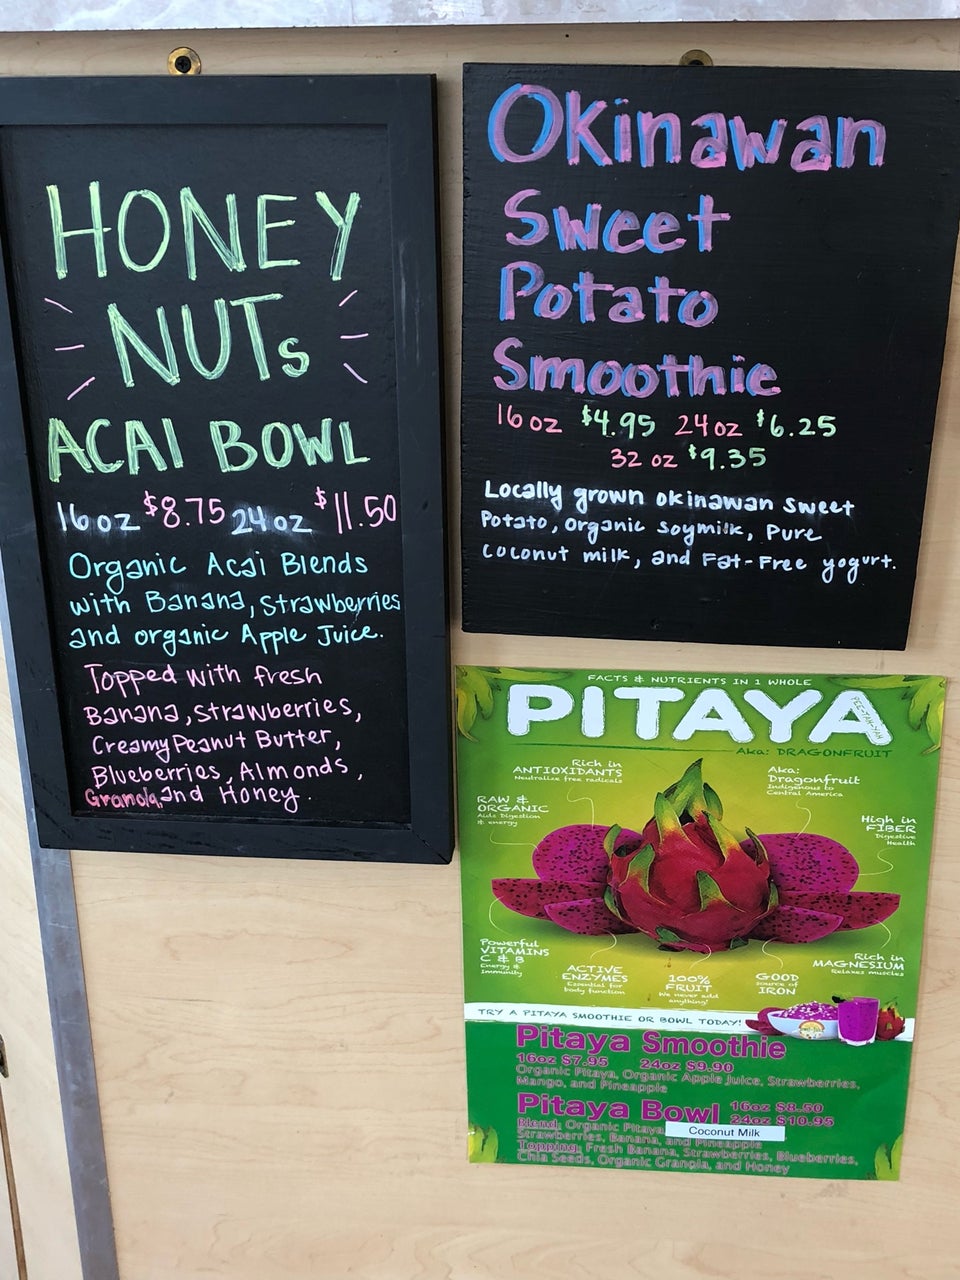 HONEY
NUTs
ACAI BOWL
16oz $8.75 24oz $11.50
Organic Acai Blends
with Banana, Strawberries
and organic Apple Juice.
Topped with fresh
Banana, Strawberries,
Creamy Peanut Butter,
Blueberries, Almonds,
Granola, and Honey.
Okinawan
Sweet
Potato
Smoothie
16oz $4.95 24oz $6.25
32 oz $9.35
Locally grown okinawan sweet
Potato, organic soymilk, Pure
coconut milk, and Fat-Free yogurt.
FACTS & NUTRIENTS IN 1 WHOLE
PITAYA
PEE-TAH-YAH
Aka: DRAGONFRUIT
Rich in
ANTIOXIDANTS
Neutralize free radicals
Aka:
Dragonfruit
Indigenous to
Central America
RAW &
ORGANIC
Aids Digestion
& energy
High in
FIBER
Digestive
Health
Powerful
VITAMINS
C & B
Energy &
Immunity
ACTIVE
ENZYMES
Essential for
body function
100%
FRUIT
We never add
anything!
GOOD
source of
IRON
Rich in
MAGNESIUM
Relaxes muscles
TRY A PITAYA SMOOTHIE OR BOWL TODAY!
Pitaya Smoothie
16oz $7.95 24oz $9.90
Organic Pitaya, Organic Apple Juice, Strawberries,
Mango, and Pineapple
Pitaya Bowl 16oz $8.50
24oz $10.95
Blend: Organic Pitaya Coconut Milk
Strawberries, Banana, and Pineapple
Topping: Fresh Banana, Strawberries, Blueberries,
Chia Seeds, Organic Granola, and Honey